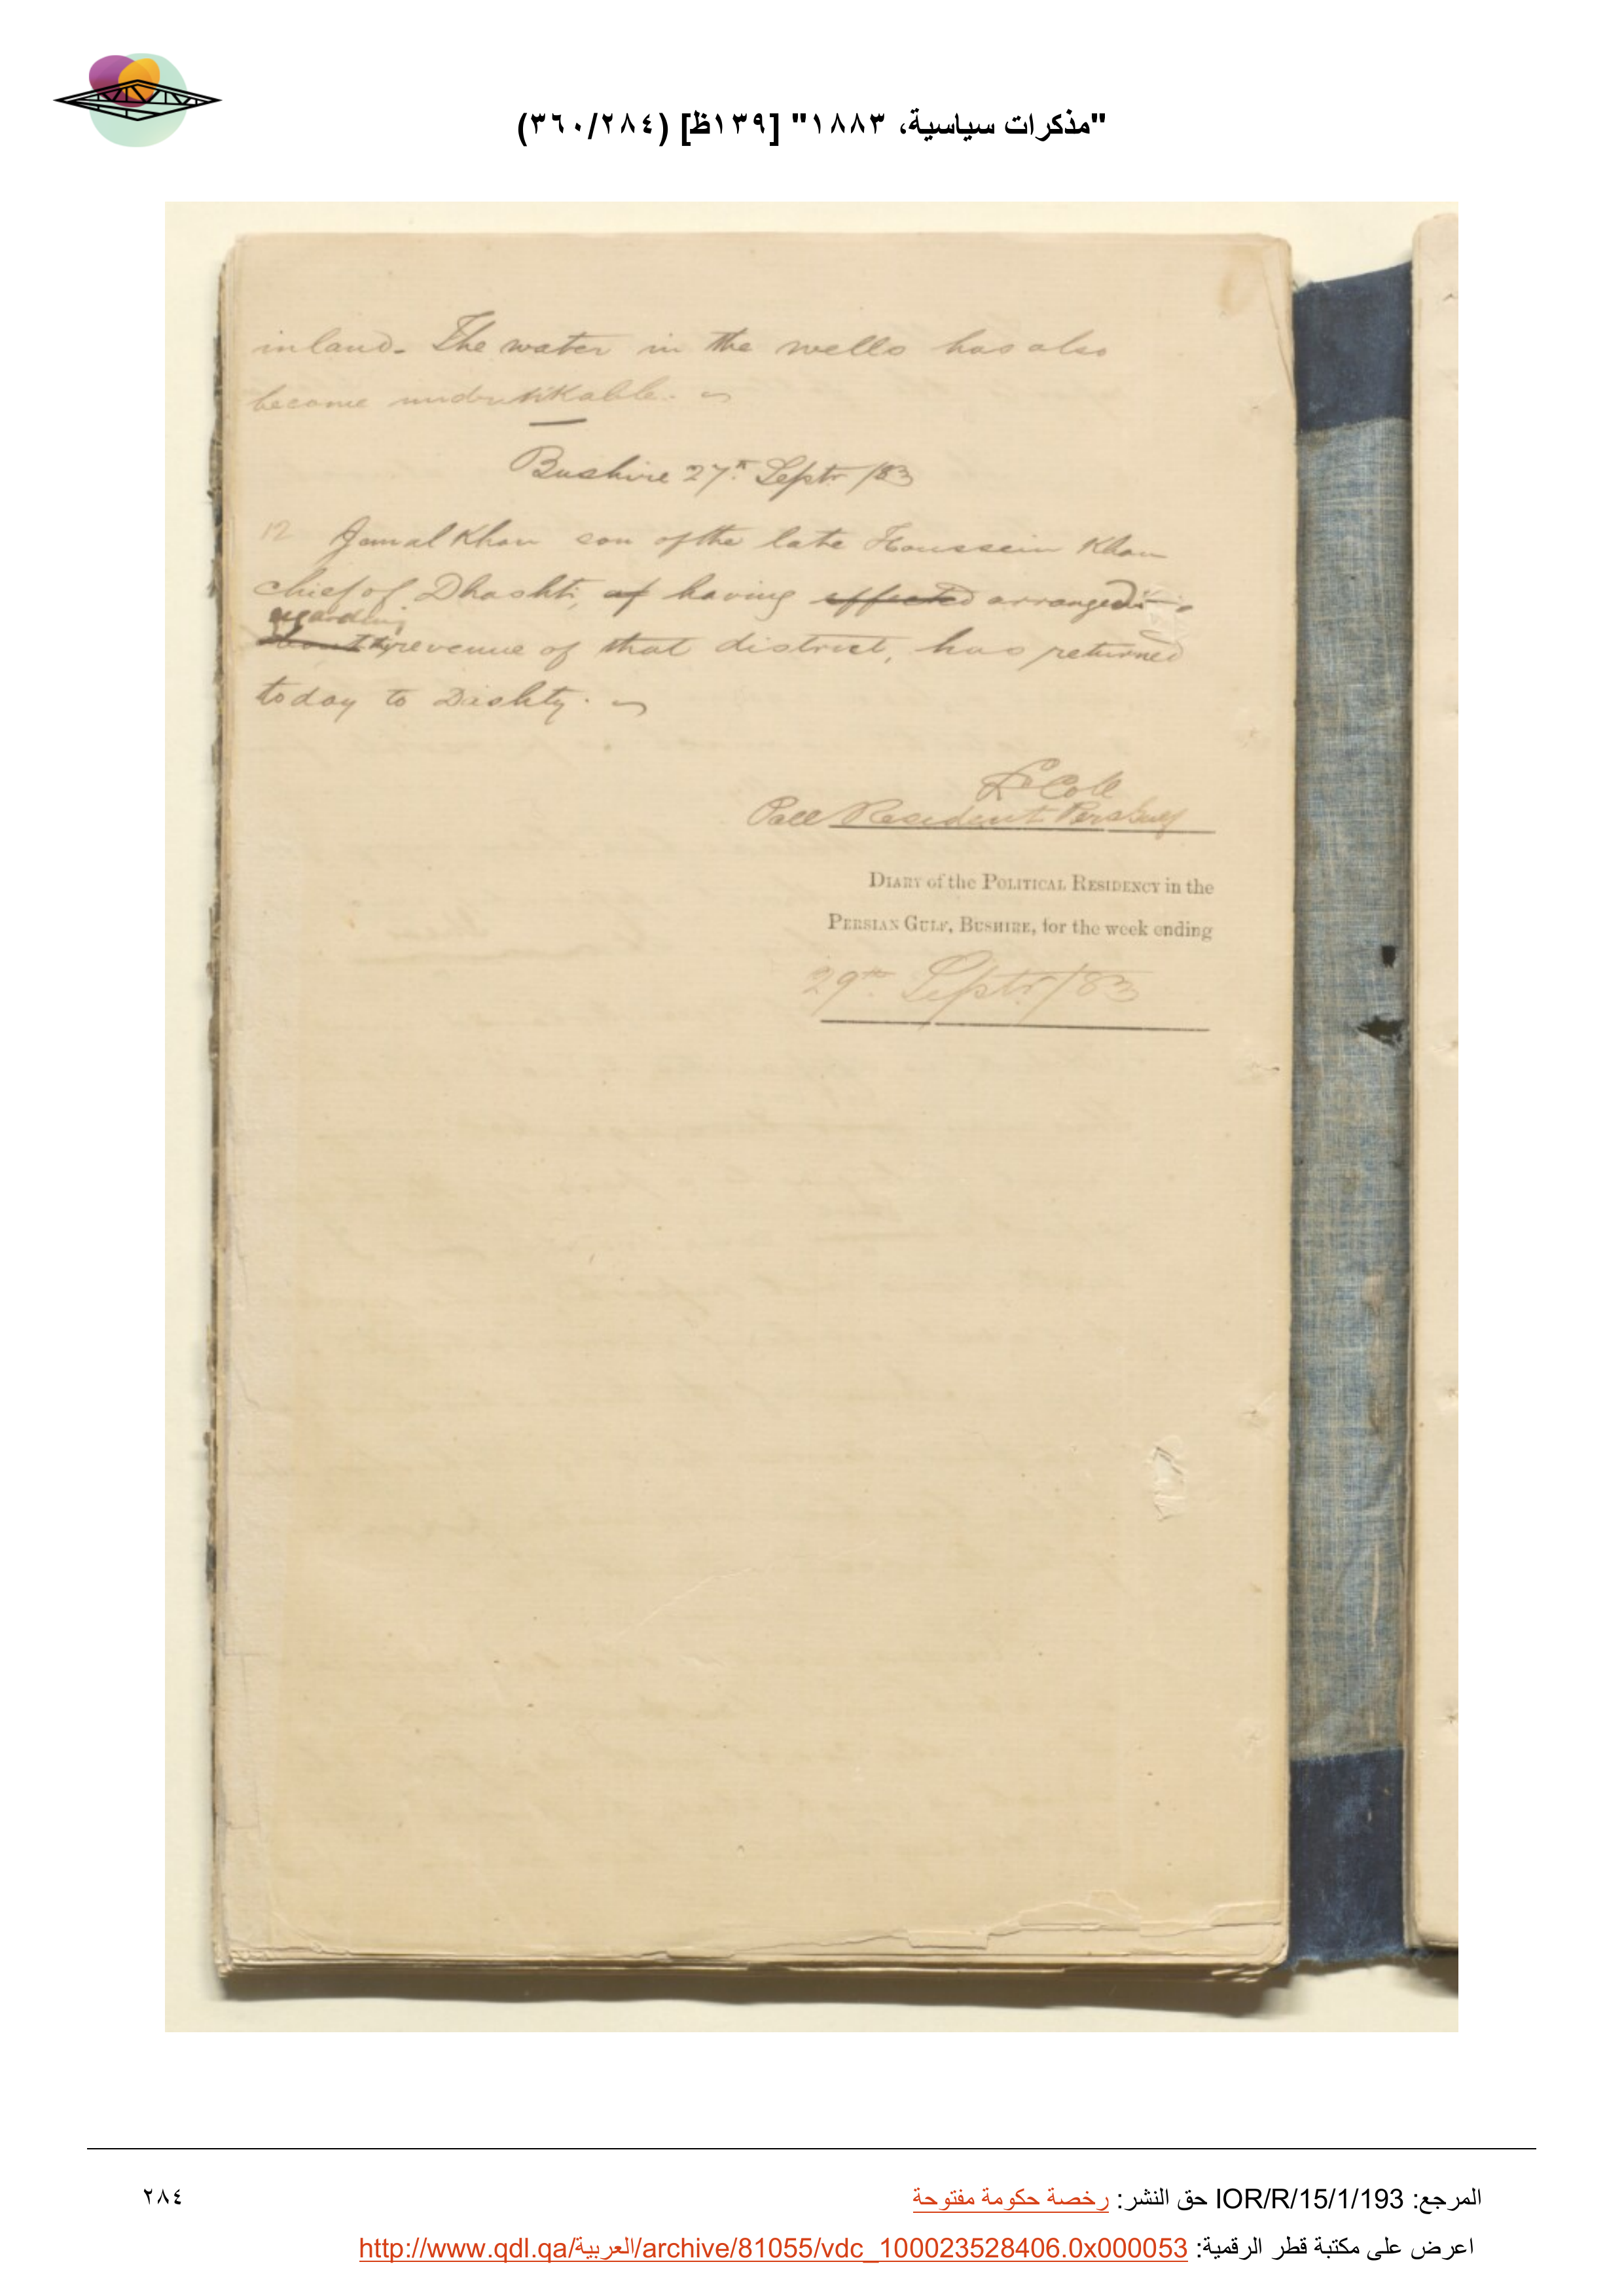 "مذكرات سياسية، ١٨٨٣" [١٣٩ظ] (٣٦٠/٢٨٤)
inland. The water in the wells has also
become undrinkable.
Bushire 27th Septr /83
12 Jamal Khan son of the late Houssein Khan
chief of Dhashti, having effected arranged
regarding
revenue of that district, has returned
today to Dashty.
Lt Coll
Poll Resident Pers Gulf
DIARY of the POLITICAL RESIDENCY in the
PERSIAN GULF, BUSHIRE, for the week ending
29th Septr /83
المرجع: IOR/R/15/1/193 حق النشر: رخصة حكومة مفتوحة
٢٨٤
اعرض على مكتبة قطر الرقمية: http://www.qdl.qa/العربية/archive/81055/vdc_100023528406.0x000053